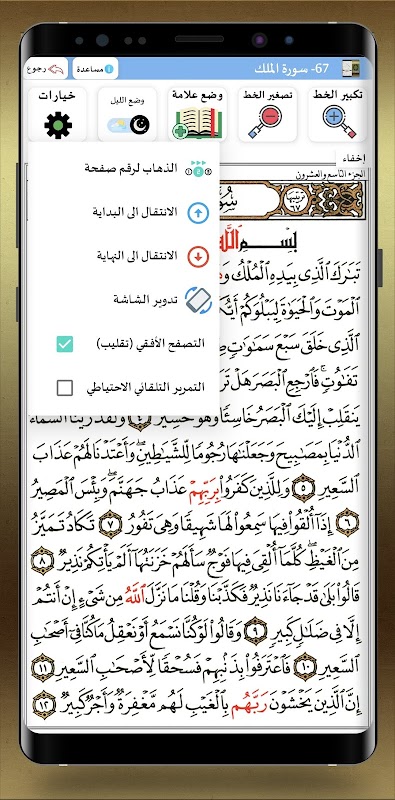 67- سورة الملك
مساعدة
رجوع
تكبير الخط
تصغير الخط
وضع علامة
وضع الليل
خيارات
إخفاء
الجزء التاسع والعشرون
الذهاب لرقم صفحة
الانتقال الى البداية
الانتقال الى النهاية
تدوير الشاشة
التصفح الأفقي (تقليب)
التمرير التلقائي الاحتياطي
بِسْمِ ٱللَّهِ
تَبَٰرَكَ ٱلَّذِي بِيَدِهِ ٱلْمُلْكُ
ٱلْمَوْتَ وَٱلْحَيَوٰةَ لِيَبْلُوَكُمْ
ٱلَّذِي خَلَقَ سَبْعَ سَمَٰوَٰتٍ
تَفَٰوُتٍۖ فَٱرْجِعِ ٱلْبَصَرَ هَلْ
يَنقَلِبْ إِلَيْكَ ٱلْبَصَرُ خَاسِئًا وَهُوَ حَسِيرٌ ٤ وَلَقَدْ زَيَّنَّا ٱلسَّمَآءَ
ٱلدُّنْيَا بِمَصَٰبِيحَ وَجَعَلْنَٰهَا رُجُومًا لِّلشَّيَٰطِينِۖ وَأَعْتَدْنَا لَهُمْ عَذَابَ
ٱلسَّعِيرِ ٥ وَلِلَّذِينَ كَفَرُوا۟ بِرَبِّهِمْ عَذَابُ جَهَنَّمَۖ وَبِئْسَ ٱلْمَصِيرُ
٦ إِذَآ أُلْقُوا۟ فِيهَا سَمِعُوا۟ لَهَا شَهِيقًا وَهِيَ تَفُورُ ٧ تَكَادُ تَمَيَّزُ
مِنَ ٱلْغَيْظِۖ كُلَّمَآ أُلْقِيَ فِيهَا فَوْجٌ سَأَلَهُمْ خَزَنَتُهَآ أَلَمْ يَأْتِكُمْ نَذِيرٌ ٨
قَالُوا۟ بَلَىٰ قَدْ جَآءَنَا نَذِيرٌ فَكَذَّبْنَا وَقُلْنَا مَا نَزَّلَ ٱللَّهُ مِن شَيْءٍ إِنْ أَنتُمْ
إِلَّا فِي ضَلَٰلٍ كَبِيرٍ ٩ وَقَالُوا۟ لَوْ كُنَّا نَسْمَعُ أَوْ نَعْقِلُ مَا كُنَّا فِيٓ أَصْحَٰبِ
ٱلسَّعِيرِ ١٠ فَٱعْتَرَفُوا۟ بِذَنۢبِهِمْ فَسُحْقًا لِّأَصْحَٰبِ ٱلسَّعِيرِ ١١
إِنَّ ٱلَّذِينَ يَخْشَوْنَ رَبَّهُم بِٱلْغَيْبِ لَهُم مَّغْفِرَةٌ وَأَجْرٌ كَبِيرٌ ١٢